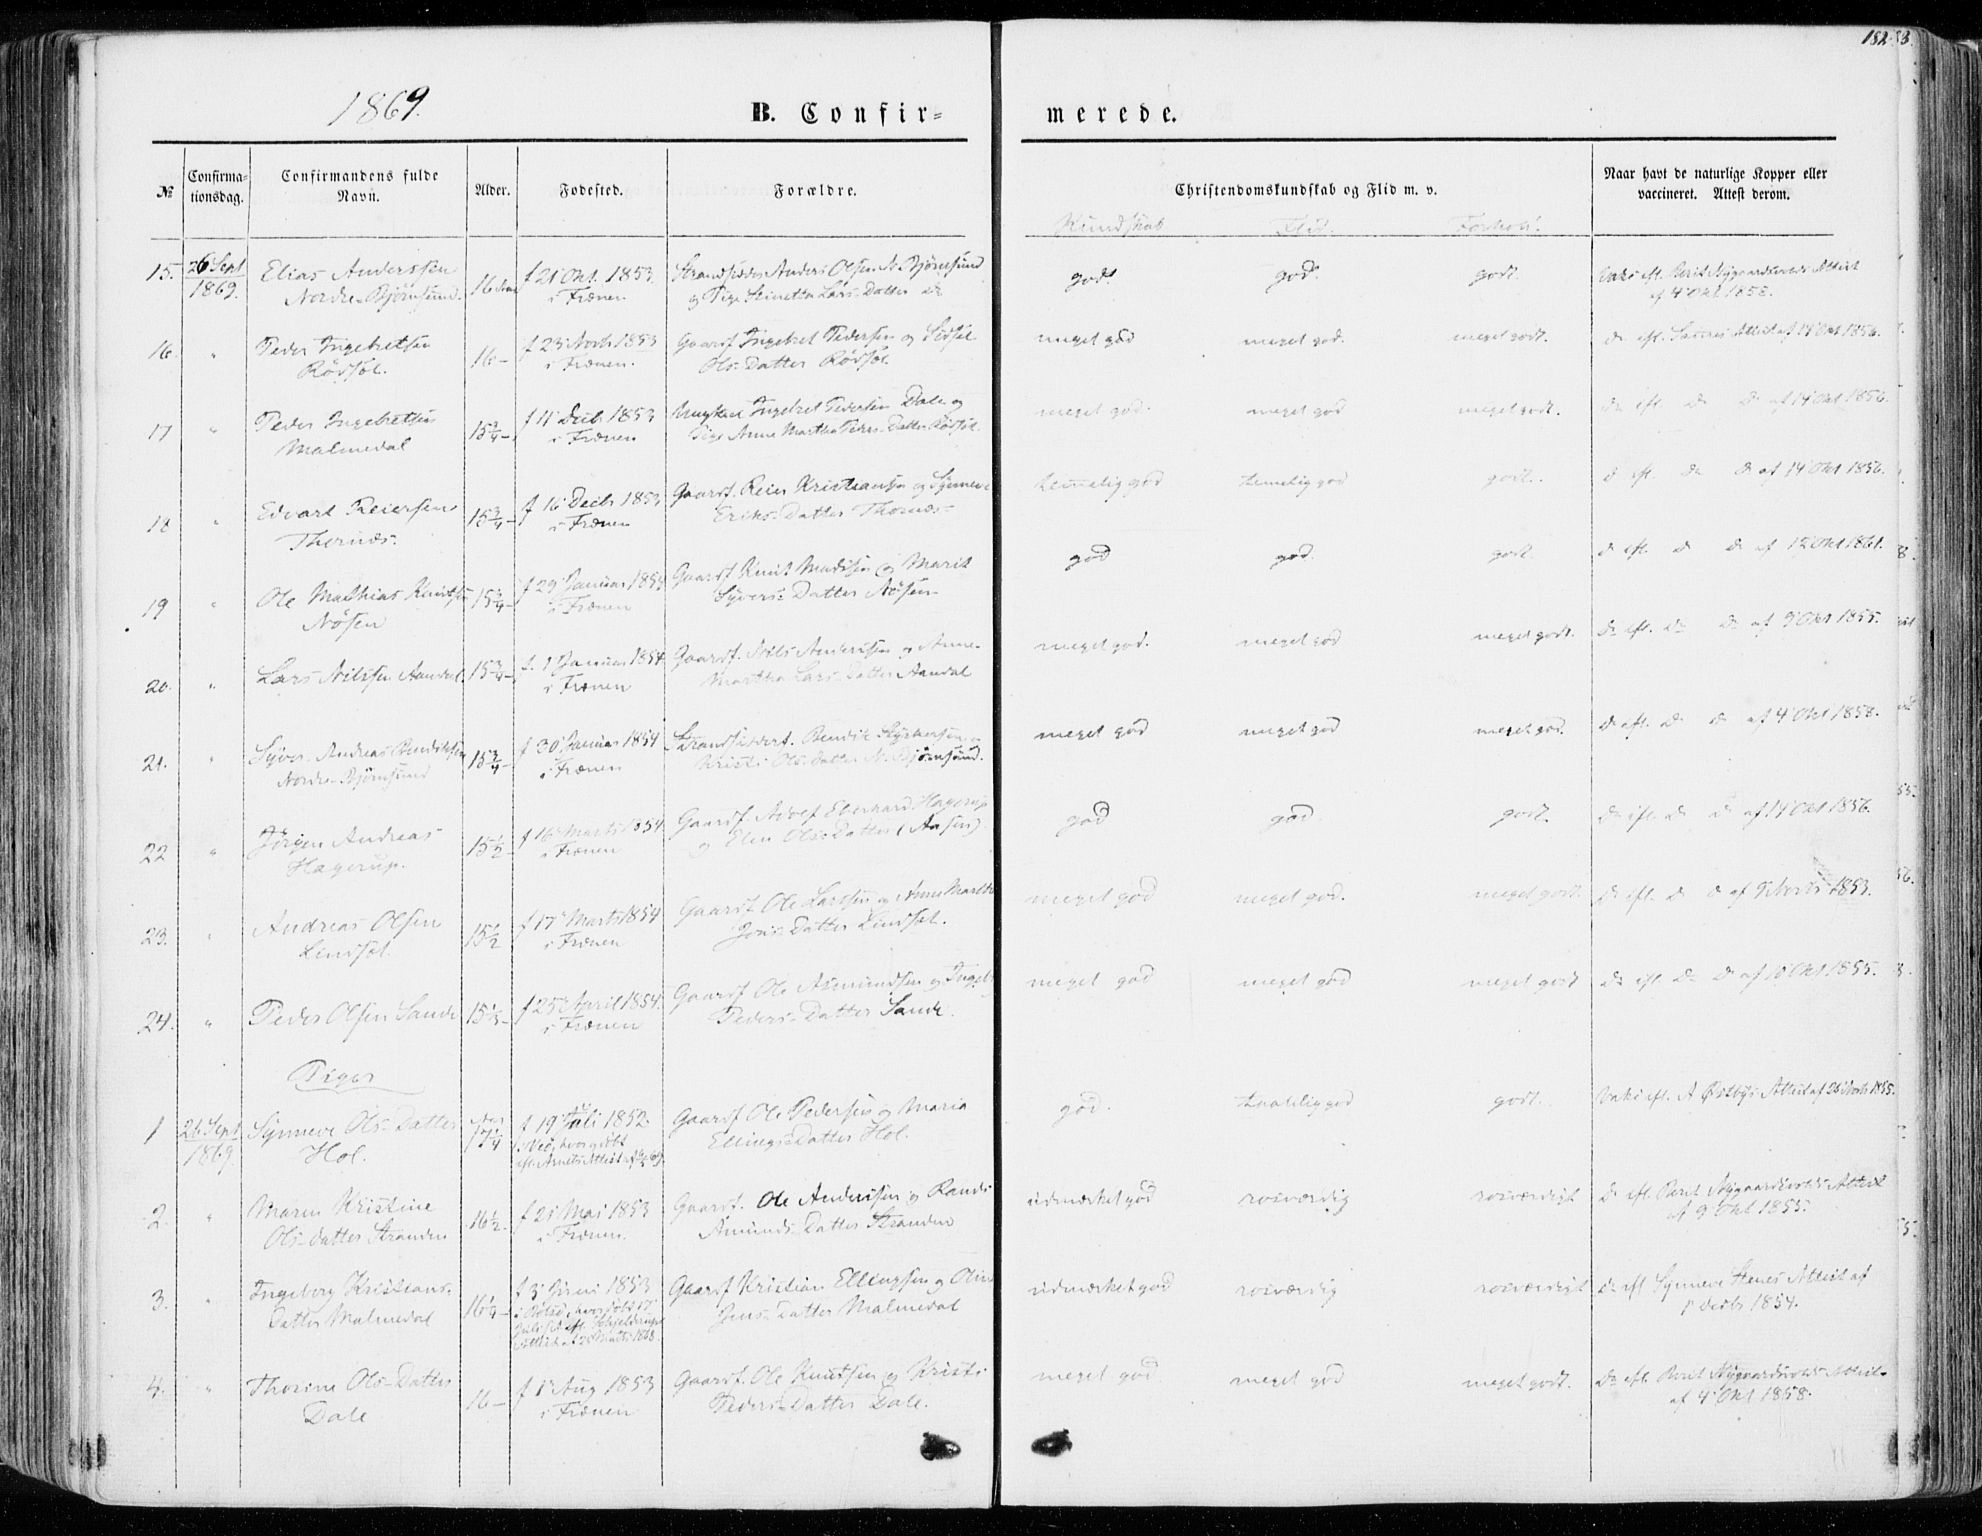 182
1869.
B. Confir=
merede.
№
Confirma=
tionsdag.
Confirmandens fulde
Navn.
Alder.
Fødested.
Forældre.
Christendomskundskab og Flid m. v.
Naar havt de naturlige Kopper eller
vaccineret. Attest derom.
Kundskab Flid. Forhold.
15. 26 Sept 1869. Elias Anderssen
Nordre-Bjørnsund. 16 f 21 Okt. 1853
i Frænen Anders Olsen N. Bjørnsund
og Pige Lars-Datter
godt god. godt. af 4 Okt 1858.
16 " Peder Ingebretsen
Rödsøl. 16- f 23 Novb 1853
i Frænen. Gaardf Ingebret Pedersen og Sidsel
Ols-Datter Rödsøl
meget god meget god. meget godt. af 14 Okt 1856.
17 " Peder Ingebretsen
Malmedal 15 3/4- f 11 Decb 1853
i Frænen Ingebret Pedersen Dale og
Pige Anne Martha Peders-Datter Rödsøl.
meget god. meget god meget godt. af 14 Okt 1856.
18 " Edvart Reiersen
Thornæs. 15 3/4- f 16 Decb 1853
i Frænen Gaardf. Reier Kristiansen og Synneve
Eriks-Datter Thornæs-
temelig god temelig god godt. af 14 Okt 1856.
19 " Ole Mathias Knutsen
Nösen 15 3/4- f 29 Januar 1854
i Frænen Gaardf Knut Madsen og Marit
Syvers-Datter Nösen-
god god. godt. af 12 Okt 1861.
20. " Lars Nilssen Aandal. 15 3/4- f. 1 Januar 1854
i Frænen Gaardf. Nils Anderssen og Anne-
Martha Lars-Datter Aandal
meget god. meget god meget godt. af 9 Okt 1855.
21. " Syver Andreas Bendiksen
Nordre-Bjørnsund 15 3/4- f 30 Januar 1854
i Frænen Bendik
Kristi Ols-Datter N. Bjørnsund.
meget god meget god meget god. af 4 Okt 1858.
22 " Jörgen Andreas
Hagerup. 15 1/2- f 16 Marts 1854
i Frænen Gaardf Adolf Eberhard Hagerup
og Elen Ols-Datter (Aasen)
god god. godt. af 14 Okt 1856.
23. " Andreas Olsen
Lindsøt. 15 1/2 f 17 Marts 1854
i Frænen Gaardf Ole Larssen og Anne Marthe
Jons-Datter Lindsøt.
meget god meget god. meget godt. 1853.
24. " Peder Olsen Sande 15 f 25 April 1854.
i Frænen Gaardf Ole Asmundsen og
Peders-Datter Sande.
meget god meget god meget godt af 10 Okt 1855.
Piger
1 26 Sept 1869 Synneve Ols-Datter
Hol. 17 1/4 f 19 Juli 1852
Gaardf Ole Pedersen og Maria
Ellings-Datter Hol.
god. god godt. Østbys Attest af 26 Novb 1855.
2. " Maren Kristine
Ols-datter Stranden 16 1/2. f 21 Mai 1853
i Frænen. Gaardf. Ole Anderssen og Randi
Amunds-Datter Stranden
udmærket god rosværdig rosværdigt af 9 Okt 1855.
3. " Ingeborg Kristians-
Datter Malmedal 16 1/4- f 3 Juni 1853
Gaardf Kristian Ellingsen og Oline
Jens-Datter Malmedal
udmærket god rosværdig rosværdigt Synneve Stenes Attest af
1 Decbr 1854.
4. " Thorine Ols-Datter
Dale 16- f 1 Aug 1853
i Frænen Gaardf. Ole Knutsen og Kristi
Peders-Datter Dale.
meget god. meget god meget godt. af 4 Okt 1858.